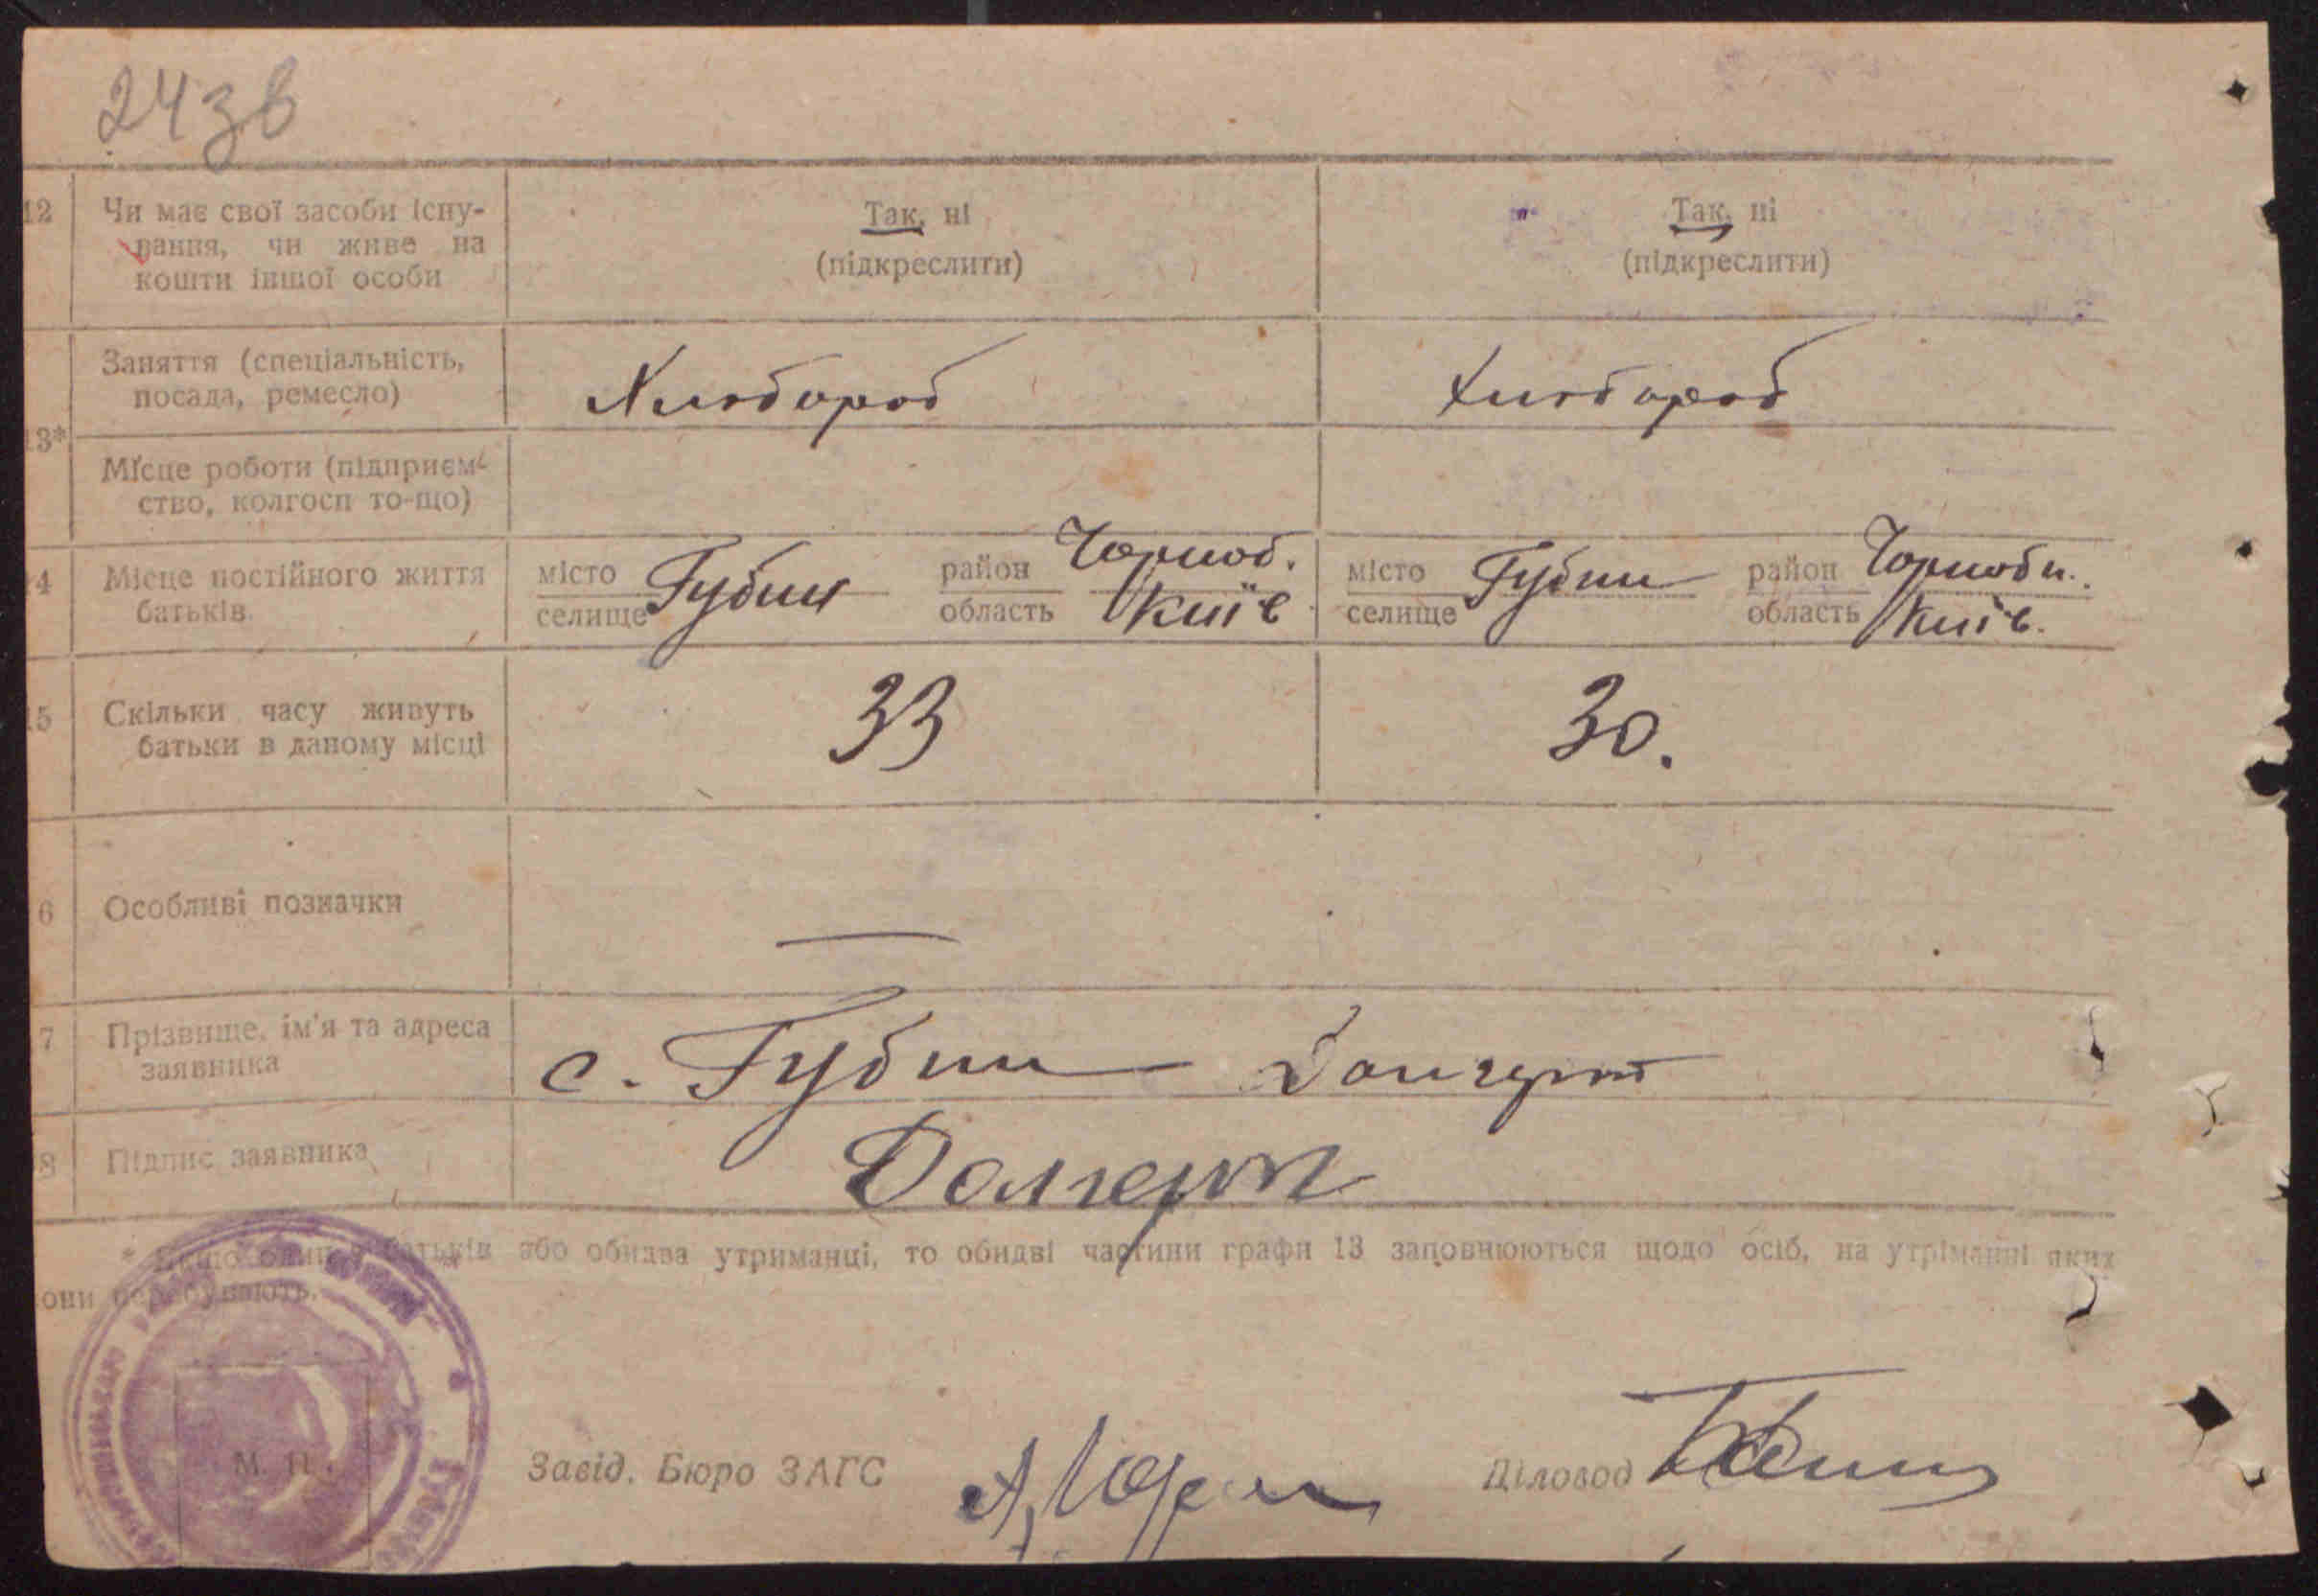 24зв
12 Чи має свої засоби існу-
вання, чи живе на
кошти іншої особи
Так, ні
(підкреслити)
Так, ні
(підкреслити)
13*
Заняття (спеціальність,
посада, ремесло)
Хлібороб
Хлібороб
Місце роботи (підприєм-
ство, колгосп то-що)
14 Місце постійного життя
батьків
місто
селище
Губин
район Чорноб.
область Київ
місто
селище
Губин
район Чорноби.
область Київ.
15 Скільки часу живуть
батьки в даному місці
33
30.
6 Особливі позначки
—
7 Прізвище, ім'я та адреса
заявника
с. Губин
8 Підпис заявника
* Якщо один з батьків або обидва утриманці, то обидві частини графи 13 заповнюються щодо осіб, на утріманні яких
они перебувають.
М. П.
Завід. Бюро ЗАГС
Діловод